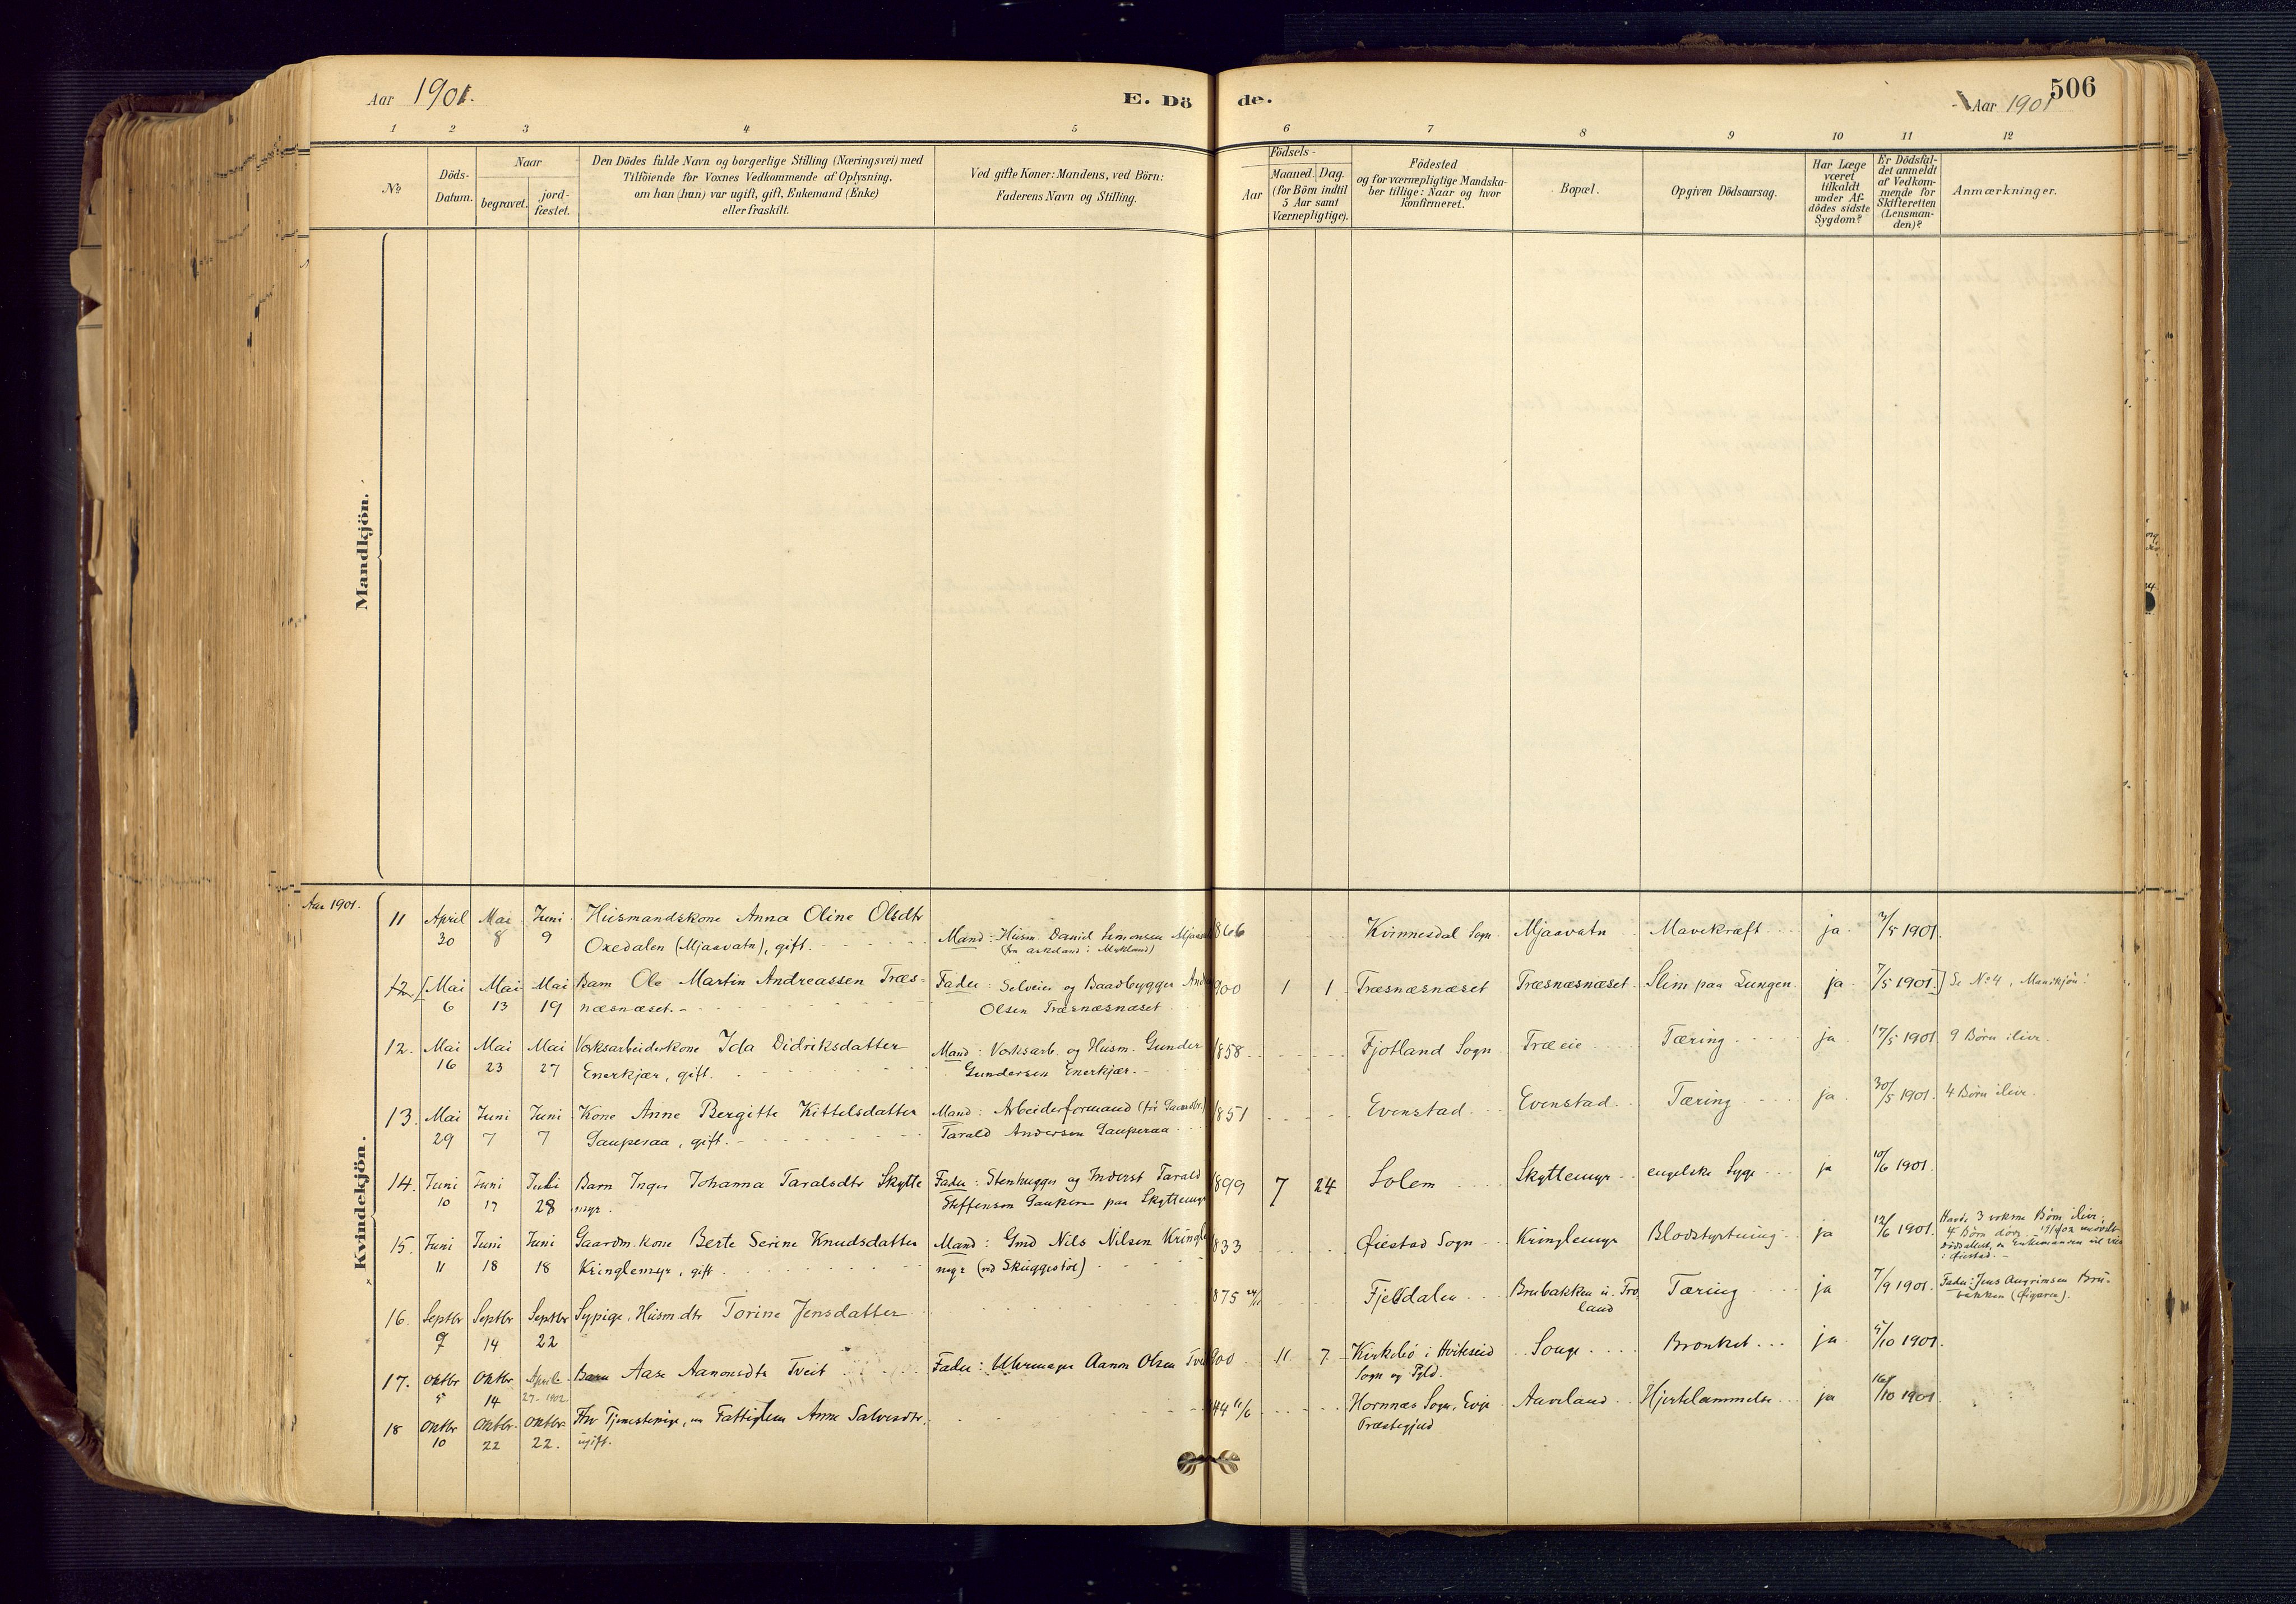 Aar 1901.
E. Dö
de.
506
Aar 1901
1 2 3 4 5 6 7 8 9 10 11 12
No
Döds-
Datum.
Naar
begravet.
jord-
fæstet.
Den Dödes fulde Navn og borgerlige Stilling (Næringsvei) med
Tilföiende for Voxnes Vedkommende af Oplysning,
om han (hun) var ugift, gift, Enkemand (Enke)
eller fraskilt.
Ved gifte Koner: Mandens, ved Börn:
Faderens Navn og Stilling.
Födsels-
Aar
Maaned. Dag.
(for Börn indtil
5 Aar samt
Værnepligtige).
Födested
og for værnepligtige Mandska-
ber tillige: Naar og hvor
konfirmeret.
Bopæl.
Opgiven Dödsaarsag.
Har Læge
været
tilkaldt
under Af-
dödes sidste
Sygdom?
Er Dödsfal-
det anmeldt
af Vedkom-
mende for
Skifteretten
(Lensman-
den)?
Anmærkninger.
Mandkjön.
Aar 1901.
Kvindekjön.
11 April Mai Juni Husmandskone Anna Oline Olsdtr
30 8 9 Oxedalen (Mjaavatn), gift.
Mand: Husm. Daniel Simonsen
866 Kvinnesdal Sogn Mjaavatn Mavekræft ja 3/5 1901.
12. [Mai Mai Mai Barn Ole Martin Andreassen Træs-
6 13 19 næsnæset.
Fader: Selveier og Baadbygger
Olsen Træsnæsnæset
900 1 1 Træsnæsnæset Træsnæsnæset Slim paa Lungen ja 7/5 1901.] Se No 4, Mandkjön!
12. Mai Mai Mai Værksarbeiderkone Ida Didriksdatter
16 23 27 Enerkjær, gift.
Mand: Værksarb. og Husm. Gunder
Gundersen Enerkjær.
1858 Fjotland Sogn Træeie Tæring ja 17/5 1901 9 Børn ilive.
13. Mai Juni Juni Kone Anne Bergitte Kittelsdatter
29 7 7 Gauperaa, gift.
Mand: Arbeiderformand (før Gaardbr.)
Tarald Andersen Gauperaa
1851 Evenstad Evenstad Tæring ja 30/5 1901. 4 Børn ilive.
14. Juni Juni Juli Barn Inger Johanna Taralsdtr Skytte
10 17 28 myr.
Fader: Stenhugger og Inderst Tarald
Steffenson Gauperaa paa Skyttemyr
1899 7 24 Solem Skyttemyr engelske Syge ja 10/6 1901.
15. Juni Juni Juni Gaardm. kone Berte Serine Knudsdatter
11 18 18 Kringlemyr, gift
Mand: Gmd Nils Nilsen Kringle
myr (ved Skuggestøl)
833 Øiestad Sogn Kringlemyr Blodstyrtning ja 12/6 1901.
Havde 3 voksne Børn ilive,
4 Børn døde.
i Øiestad.
16. Septbr Septbr Septbr Sypige, Husm.dtr Torine Jensdatter
7 14 22
875 Fjeldalen Brubakken u. Fro
land Tæring ja 7/9 1901. Fader: Jens Angrimsen Bru-
bakken
17. Oktbr Oktbr April Barn Aase Aanonsdtr Tveit
5 14 27-1902
Fader: Uhrmager Aanon Olsen Tveit
900 11 7 Kirkebö i Hvitseid
Sogn og Pgld. Songe Bronket ja 5/10 1901.
18 Oktbr Oktbr Oktbr Fhv Tjenestepige, nu Fattiglem Anne Salvesdtr.
10 22 22. ugift.
844 11/6 Hornnæs Sogn, Evje
Præstegjeld Aaveland Hjertelammelse ja 16/10 1901.